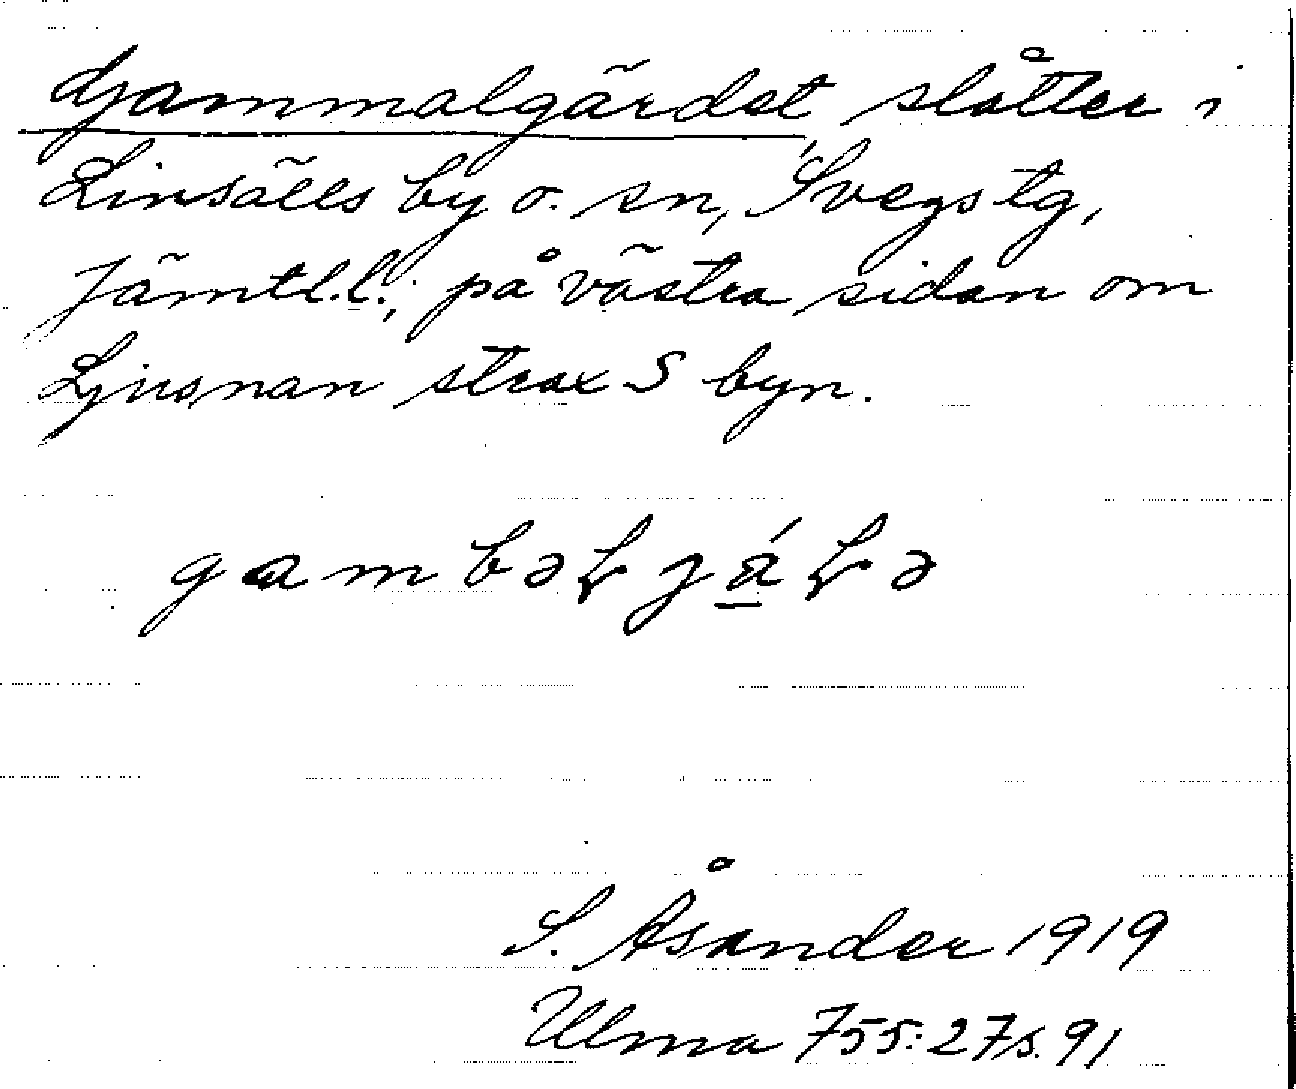 Gammalgärdet, slåtter i
Linsälls by o. sn, Svegs tg,
Jämtl.l.; på västra sidan om
Ljusnan strax S byn.
S. Åsander 1919
Ulma 755:27 s. 91